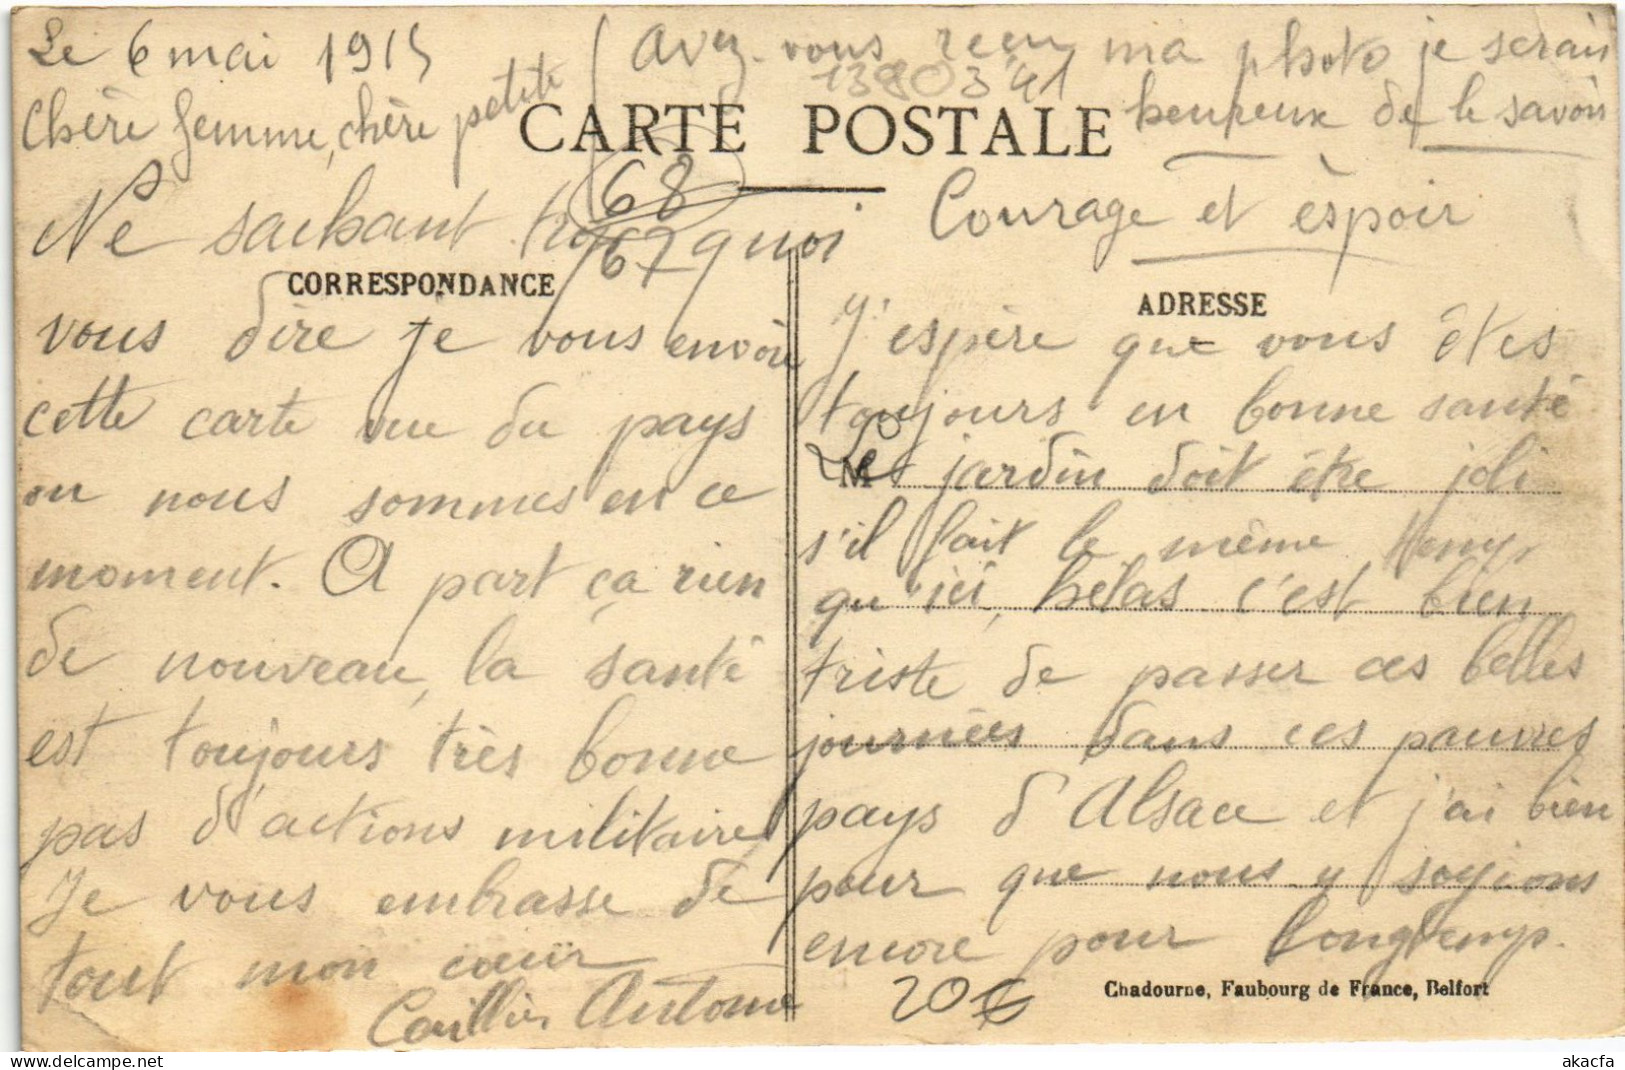 Le 6 mai 1915
Chère femme, chère petite
CARTE POSTALE
Ne sachant trop quoi
CORRESPONDANCE
vous dire je vous envoie
cette carte vue du pays
ou nous sommes en ce
moment. A part ça rien
de nouveau, la santé
est toujours très bonne
pas d'actions militaire
Je vous embrasse de
tout mon cœur
Caillier Antoine
avez-vous reçu ma photo je serais
heureux de le savoir
1380341
68
67
Courage et espoir
ADRESSE
J'espère que vous êtes
toujours en bonne santé
M
Le jardin doit être joli
s'il fait le même temps
qu'ici, hélas c'est bien
triste de passer ces belles
journées dans ces pauvres
pays d'Alsace et j'ai bien
peur que nous y soyions
encore pour longtemps.
20€
Chadourne, Faubourg de France, Belfort
akacfa